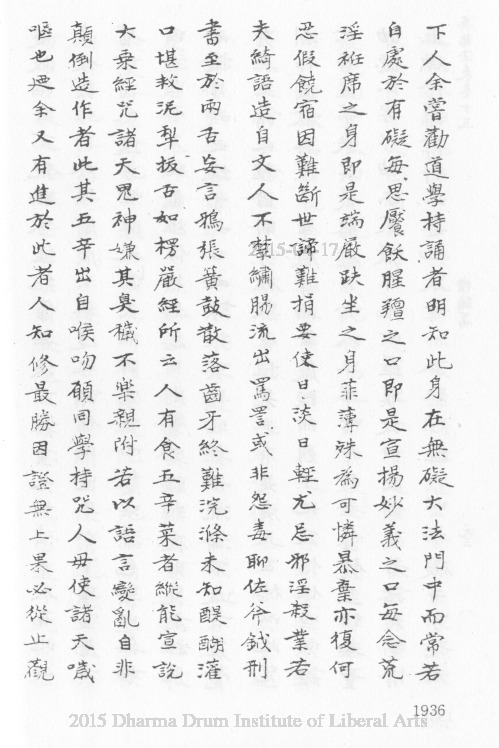 下人余嘗勸道學持誦者明知此身在無礙大法門中而常若
自處於有礙每思饜飫腥羶之口即是宣揚妙義之口每念荒
淫袵席之身即是端嚴趺坐之身菲薄殊為可憐暴棄亦復何
忍假饒宿因難斷世諦難捐要使日淡日輕尤忌邪淫殺業若
夫綺語造自文人不㝹繡腸流出罵詈或非怨毒聊佐斧鉞刑
書至於兩舌妄言鴉張簧鼓散落齒牙終難浣滌未知醍醐灌
口堪救泥犁拔舌如楞嚴經所云人有食五辛菜者縱能宣說
大乘經咒諸天鬼神嫌其臭穢不樂親附若以語言變亂自非
顛倒造作者此其五辛出自喉吻願同學持咒人毋使諸天噦
嘔也迺余又有進於此者人知修最勝因證無上果必從止觀
1936
2015 Dharma Drum Institute of Liberal Arts